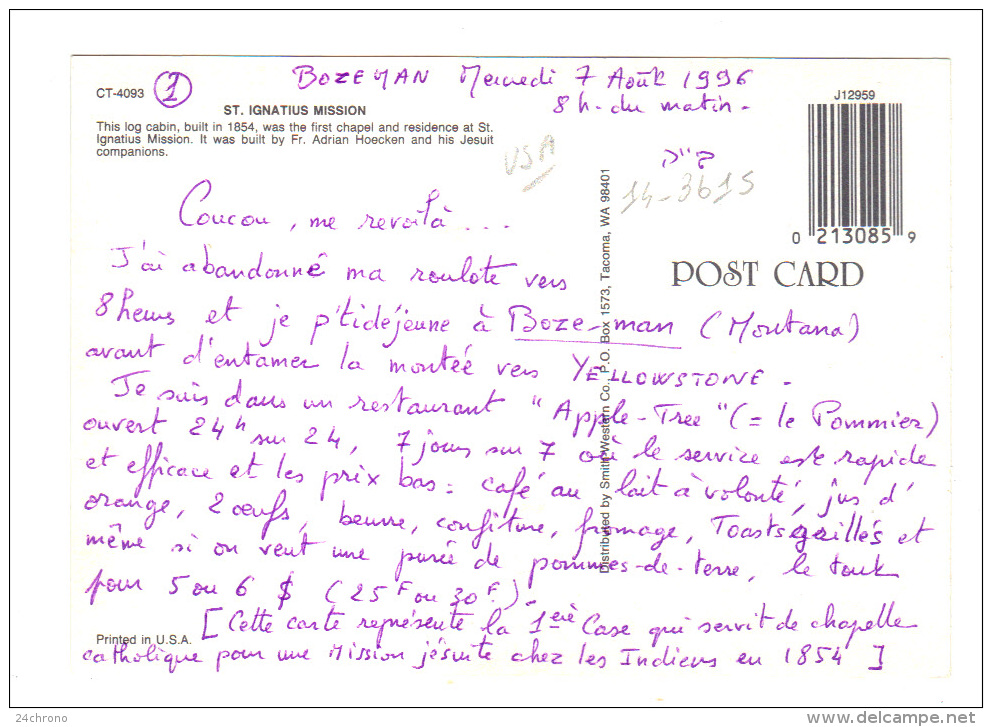 CT-4093 ①
BOZEMAN Mercredi 7 Août 1996
8 h. du matin -
J12959
ST. IGNATIUS MISSION
This log cabin, built in 1854, was the first chapel and residence at St.
Ignatius Mission. It was built by Fr. Adrian Hoecken and his Jesuit
companions.
USA
14-3615
0 213085 9
POST CARD
Distributed by Smith-Western Co., P.O. Box 1573, Tacoma, WA 98401
Coucou, me revoilà ...
J'ai abandonné ma roulote vers
8 heures et je p'tidéjeune à Boze-man (Montana)
avant d'entamer la montée vers YELLOWSTONE -
Je suis dans un restaurant "Apple-Tree" (= le Pommier)
ouvert 24h sur 24, 7 jours sur 7 où le service est rapide
et efficace et les prix bas : café au lait à volonté, jus d'
orange, 2 œufs, beurre, confiture, fromage, Toasts grillés et
même si on veut une purée de pommes-de-terre, le tout
pour 5 ou 6 $ (25F ou 30F.) -
[Cette carte représente la 1ère Case qui servit de chapelle
catholique pour une Mission jésuite chez les Indiens en 1854]
Printed in U.S.A.
24chrono
www.delcampe.net